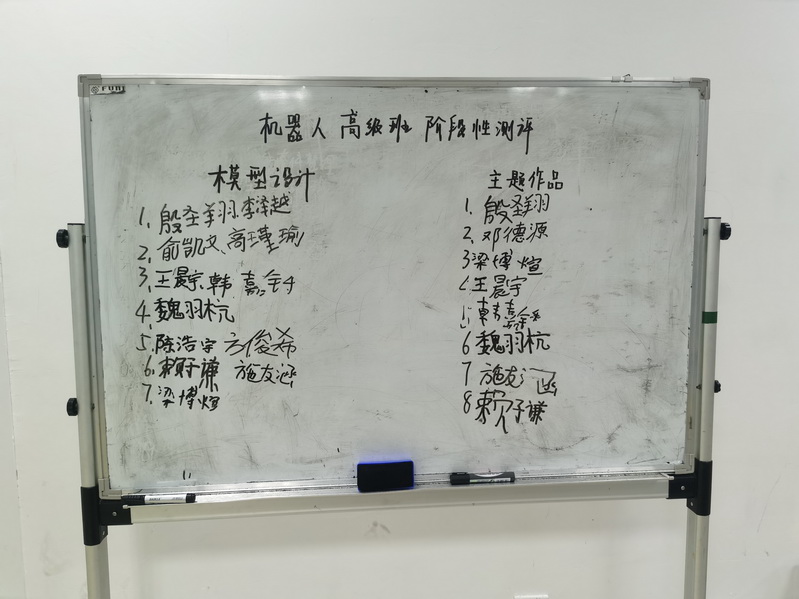 FUHI
机器人 高级班 阶段性测评
模型设计
1. 殷圣翔、李泽越
2. 俞凯文、高瑾瑜
3. 王晨宇、韩嘉
4. 魏羽杭
5. 陈浩宇 方俊希
6. 赖子谦 施友涵
7. 梁博煊
主题作品
1. 殷圣翔
2. 邓德源
3 梁博煊
王晨宇
韩嘉
6 魏羽杭
7 施友涵
8 赖子谦